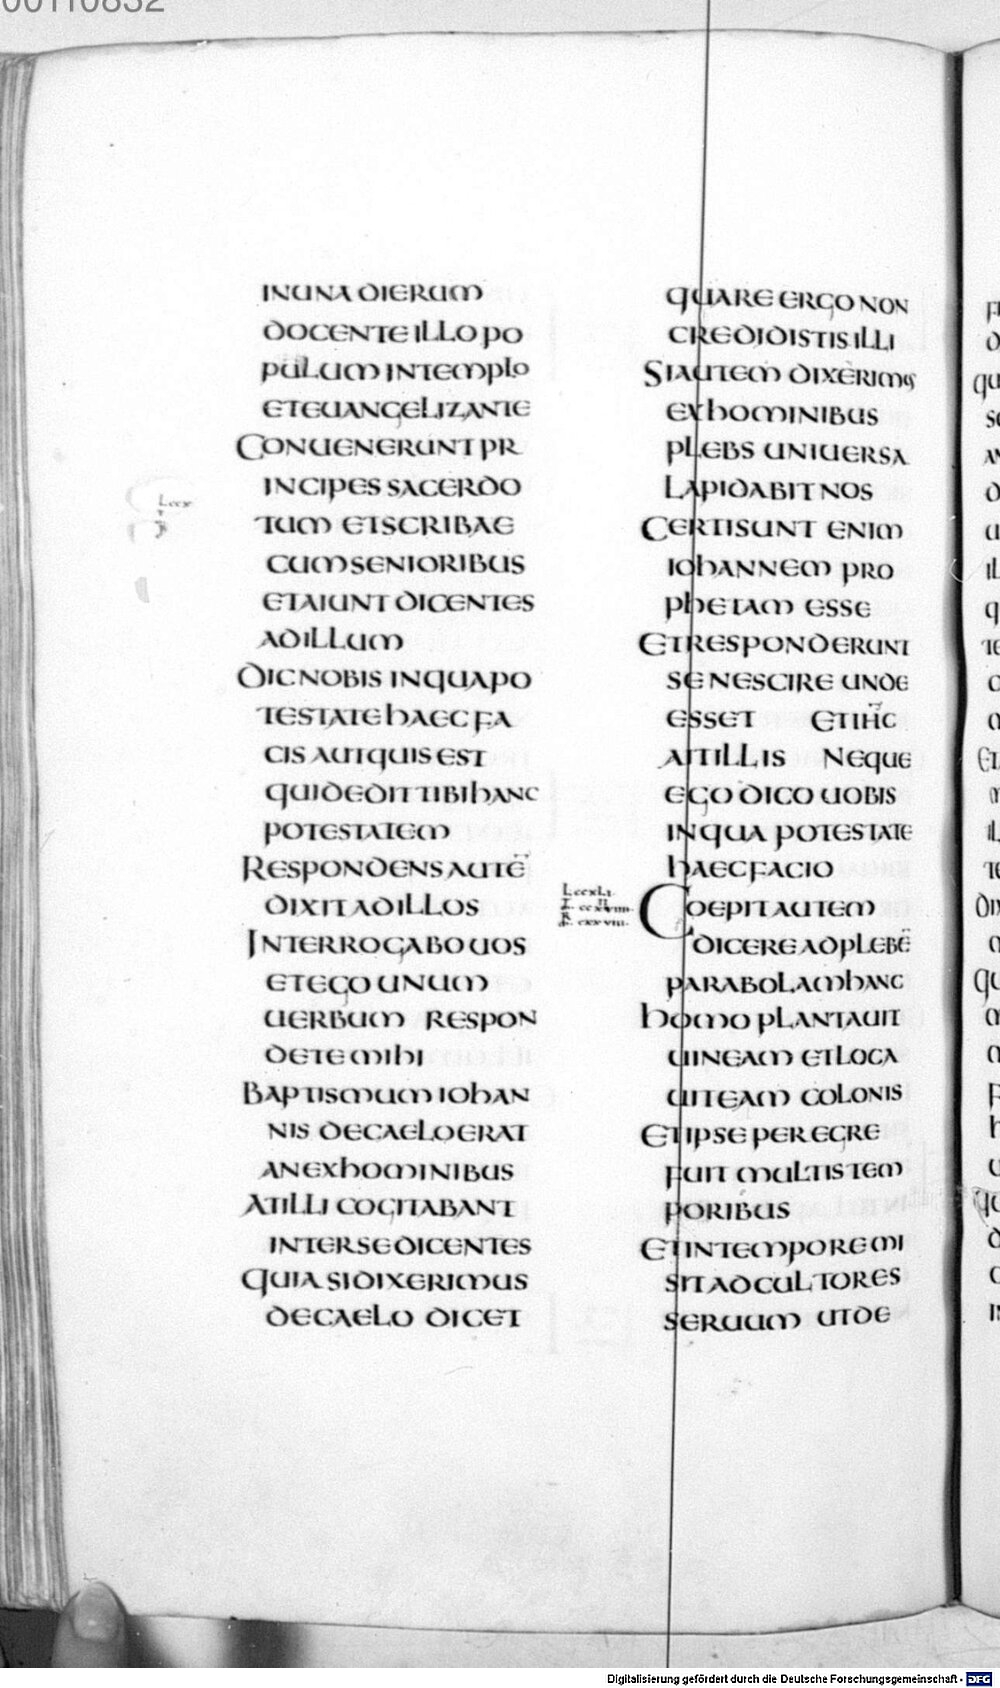 00110832
IN UNA DIERUM
DOCENTE ILLO PO
PULUM IN TEMPLO
ET EUANGELIZANTE
CONUENERUNT PR
INCIPES SACERDO
TUM ET SCRIBAE
CUM SENIORIBUS
ET AIUNT DICENTES
AD ILLUM
DIC NOBIS IN QUA PO
TESTATE HAEC FA
CIS AUT QUIS EST
QUI DEDIT TIBI HANC
POTESTATEM
RESPONDENS AUTE̅
DIXIT AD ILLOS
INTERROGABO UOS
ET EGO UNUM
UERBUM RESPON
DETE MIHI
BAPTISMUM IOHAN
NIS DE CAELO ERAT
AN EX HOMINIBUS
AT ILLI COGITABANT
INTER SE DICENTES
QUIA SI DIXERIMUS
DE CAELO DICET
QUARE ERGO NON
CREDIDISTIS ILLI
SI AUTEM DIXERIMUS
EX HOMINIBUS
PLEBS UNIUERSA
LAPIDABIT NOS
CERTI SUNT ENIM
IOHANNEM PRO
PHETAM ESSE
ET RESPONDERUNT
SE NESCIRE UNDE
ESSET ET IHC̅
AIT ILLIS NEQUE
EGO DICO UOBIS
IN QUA POTESTATE
HAEC FACIO
COEPIT AUTEM
DICERE AD PLEBE̅
PARABOLAM HANC
HOMO PLANTAUIT
UINEAM ET LOCA
UIT EAM COLONIS
ET IPSE PEREGRE
FUIT MULTIS TEM
PORIBUS
ET IN TEMPORE MI
SIT AD CULTORES
SERUUM UT DE
Digitalisierung gefördert durch die Deutsche Forschungsgemeinschaft - DFG